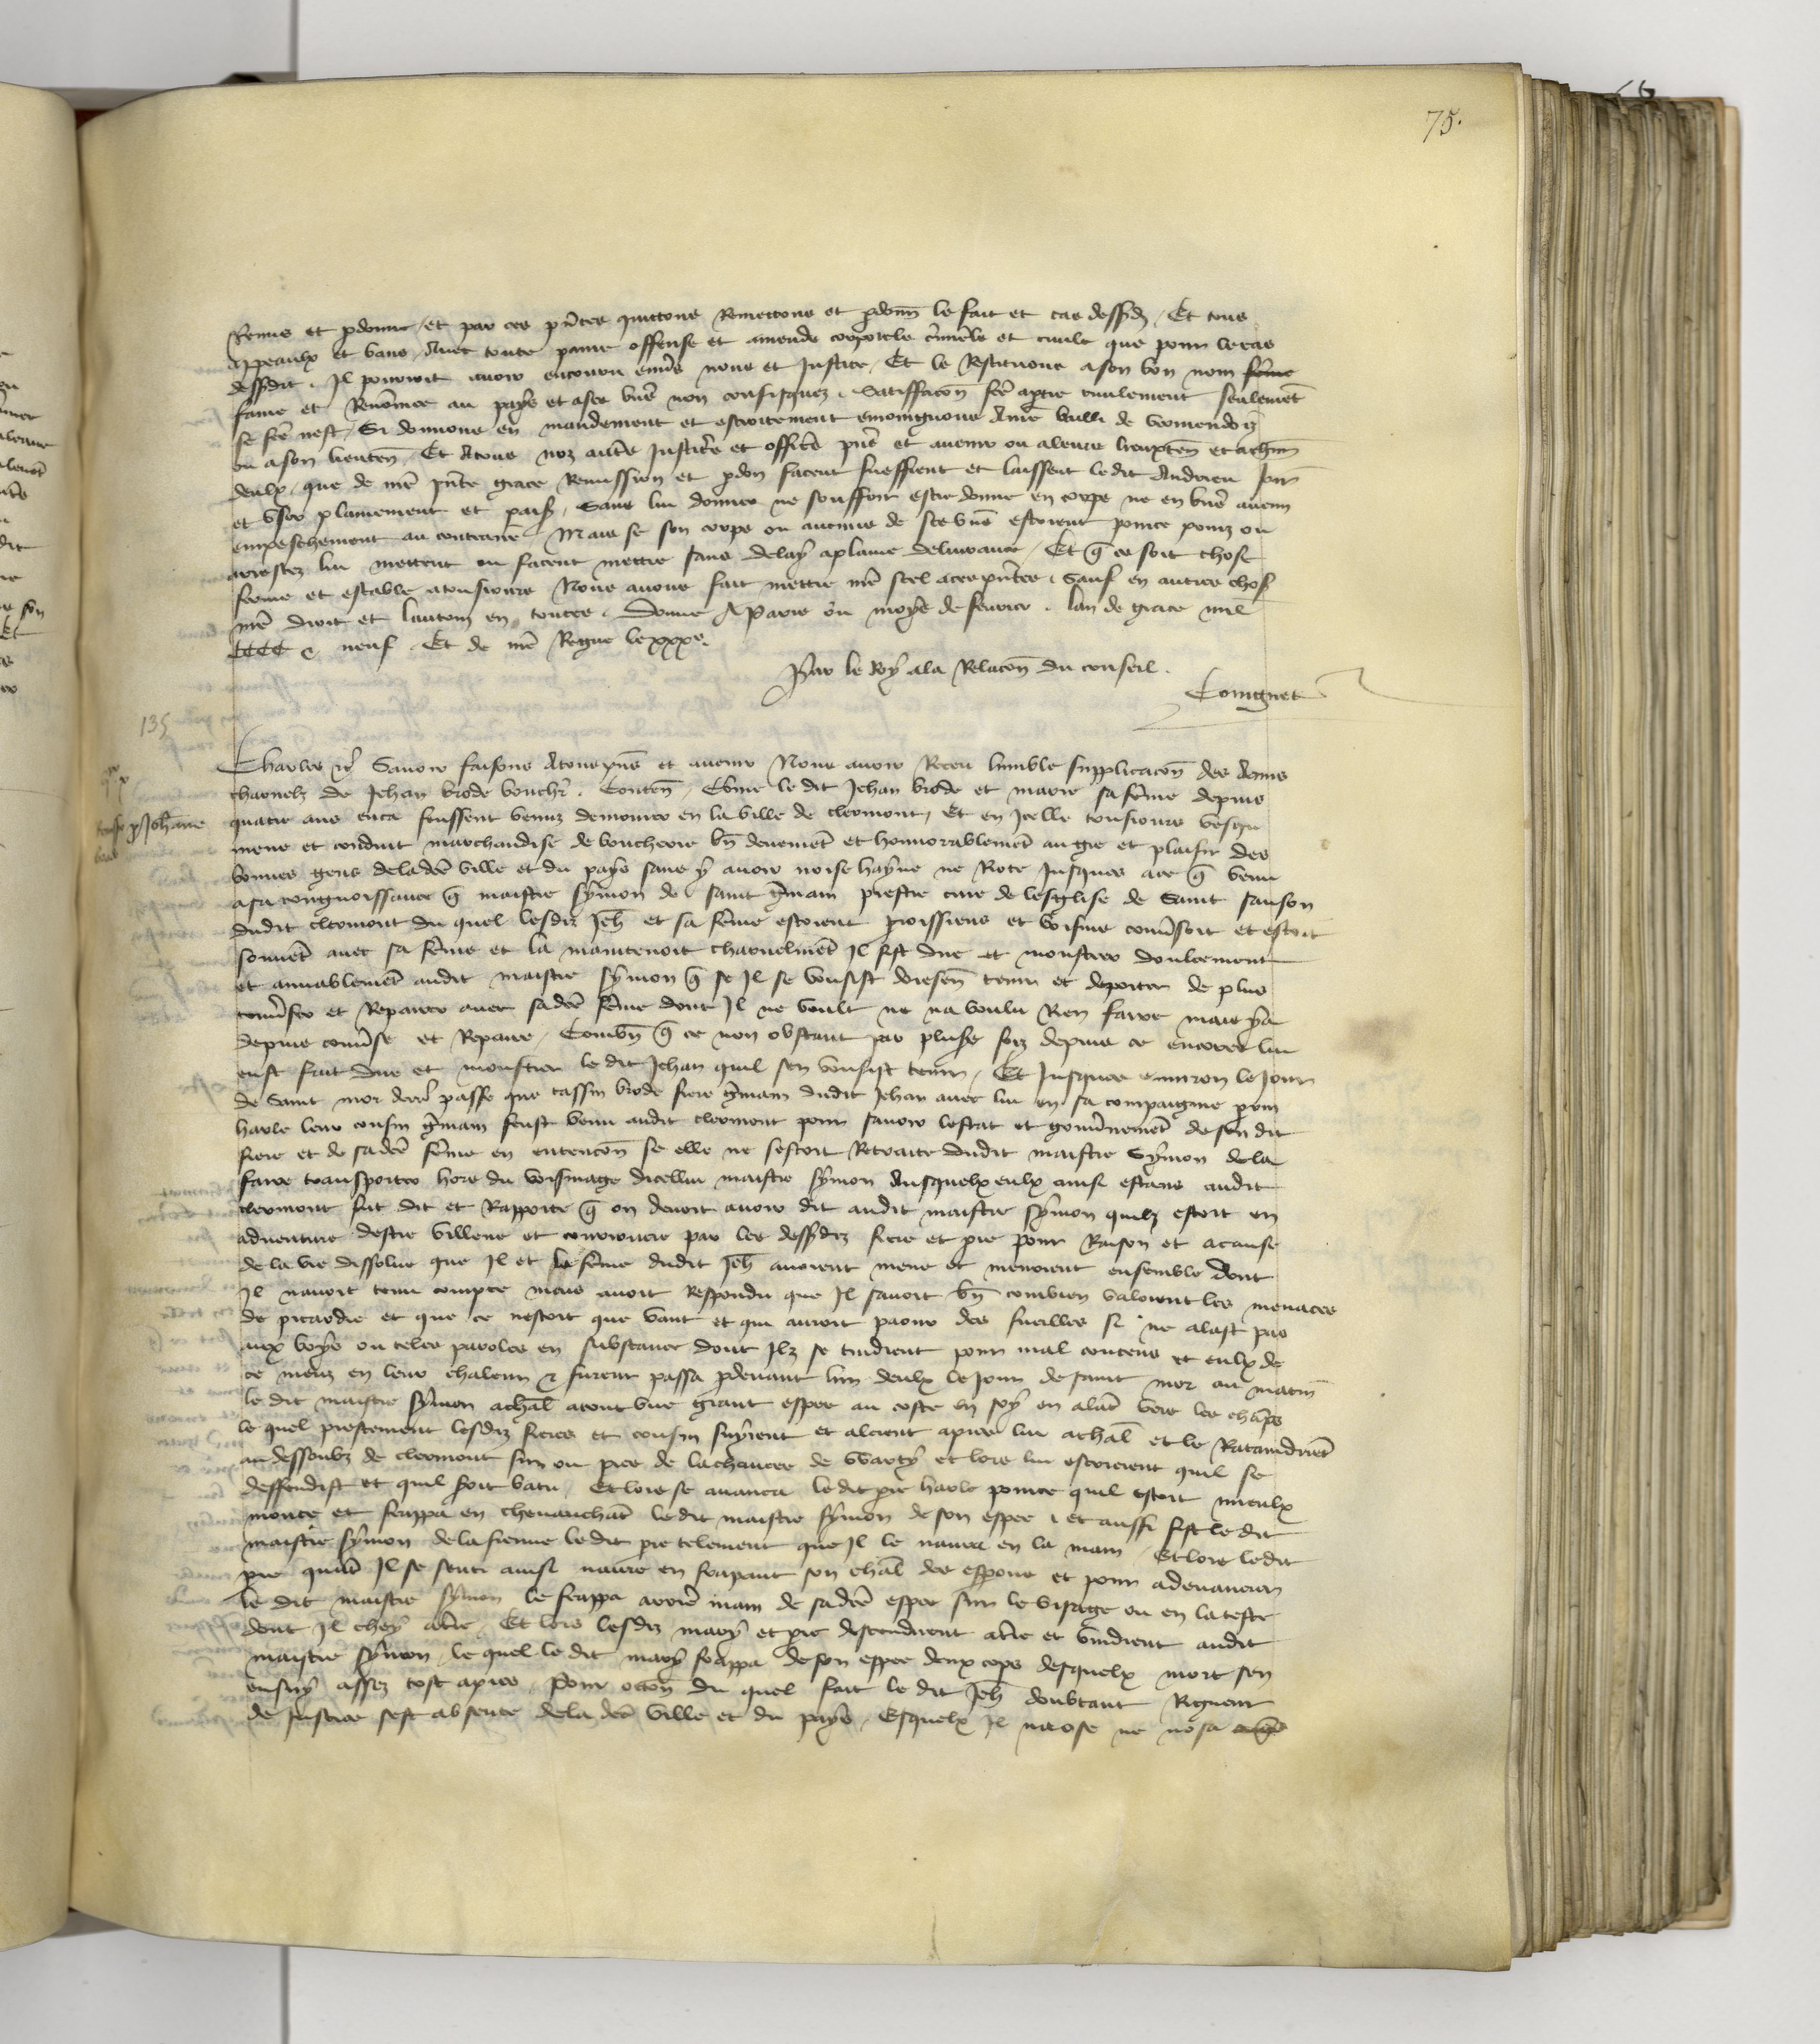 75.
Remis et pdonne et par ces pntes quictons Remettons et pdonn le fait et cas dessdz. Et tous
Appeaulx et bans. Avec toute paine offense et amende corporele crimele et civile que pour le cas
dessdit. Il pourroit avoir encouru envs nous et Justice. Et le Restituons a son bon nom
fame et Renomee au pays et a ses biens non confisquez. Satisfaccon fce a ptie civilement seulement
se fce nest. Si donnons en mandement et estroitement enioingnons Au bailli de vermendois
ou a son lieuten. Et A tous noz autres Justiciers et officiers pns et avenir ou a leurs lieuxten et a chun
deulx. que de nre pnte grace Remission et pdon facent sueffrent et laissent ledit Andrieu Joir
et user plainement et paisi. Sans lui donner ne souffrir estre donne en corps ne en biens aucun
empeschement au contraire. Mais se son corps ou aucuns de ses biens estoient pour ce prins ou
arrestez lui mettent ou facent mettre sans delay a plaine delivrance. Et q ce soit chose
ferme et estable a tousiours Nous avons fait mettre nre scel a ces pntes. Sauf en autres chos
nre droit et lautruy en toutes. Donne A Paris ou moys de fevrier. lan de grace mil
CCCC & neuf. Et de nre Regne le xxxe.
Par le Roy a la Relacon du conseil.
Coingnet
135
Charles etc Savoir faisons A tous pns et avenir Nous avoir Receu lumble supplicacon des Amis
charnelz de Jehan brode bouchr. Conten. Come le dit Jehan brode et marie sa feme depuis
quatre ans enca feussent venuz demourer en la ville de clermont. Et en Icelle tousiours vesqu
p Johanne
mene et conduit marchandise de boucherie bn deuement et honnorablement au gre et plaisir des
bonnes gens de la dce ville et du pays sans y avoir noise hayne ne Rote Jusques a ce q venu
a sa congnoissance q maistre symon de saint gmain prestre cure de lesglise de Saint Sanson
dudit clermont du quel lesdiz Jeh et sa feme estoient proissiens et voisins convsoit et estoit
souvet avec sa feme et la maintenoit charnelmet Il fist dire et monstrer doulcement
et amiablement audit maistre symon q se Il se voulsist doresen tenir et deporter de plus
convser et Repairer avec sa dce feme dont Il ne voult ne na voulu Rien faire mais y a
depuis convse et Repaire. Combn q ce non obstant par plusrs foiz depuis ce encores lui
eust fait dire et monstrer le dit Jehan quil sen voulsist tenir. Et Jusques environ le Jour
de Saint mor derr passe que cassin brode frere gmain dudit Jehan avec lui en sa compaignie prin
harle leur cousin gmain feust venu audit clermont pour savoir lestat et gouvnement de son dit
frere et de sa dce feme en entencon se elle ne sestoit Retraite dudit maistre Symon de la
faire transporter hors du voisinage dicellui maistre symon Ausquelx eulx ainsi estans audit
clermont fut dit et Rapporte q on devoit avoir dit audit maistre symon quilz estoit en
adventure destre villene et courroucie par les dessdiz frere et pre pour Raison et a cause
de la vie dissolue que Il et la feme dudit Jeh avoient mene et menoient ensemble dont
Il navoit tenu compte mais avoit Respondu que Il savoit bn combien valoient les menaces
de picardie et que ce nestoit que vant et qui auroit paour des fueilles si ne alast pas
aux boys ou teles paroles en substance dont Ilz se tindrent pour mal contens et eulx de
ce meuz en leur chaleur & furent passa p devant lun deulx le Jour de saint mor au matin
le dit maistre symon a chal atout une grant espee au coste en soy en alat vers les champs
le quel prestement lesdiz freres et cousin suyrent et alerent apres lui a chal et le Rataindrent
au dessoubz de clermont sur ou pres de la chaucee de Warty et lors lui escrierent quil se
deffendist et quil soit batu. Et lors se avanca ledit pre harle pource quil estoit mieulx
monte et frappa en chevauchat ledit maistre symon de son espee. et aussi fist ledit
maistre symon de la sienne ledit pre telement que Il le navra en la main. Et lors ledit
pre quat Il se senti ainsi navre en frapant son chal des esprons et pour adevancier
le dit maistre symon le frappa arriere main de sa dce espee sur le visage ou en la teste
dont Il chey a tre. Et lors lesdiz mary et pre descendirent a tre et vindrent audit
maistre symon. le quel le dit mary frappa de son espee deux cops desquelx mort sen
ensuy assez tost apres. Pour occon du quel fait le dit Jeh doubtant Rigueur
de Justice sest absente de la dce ville et du pays. Esquelx Il nose ne nosa